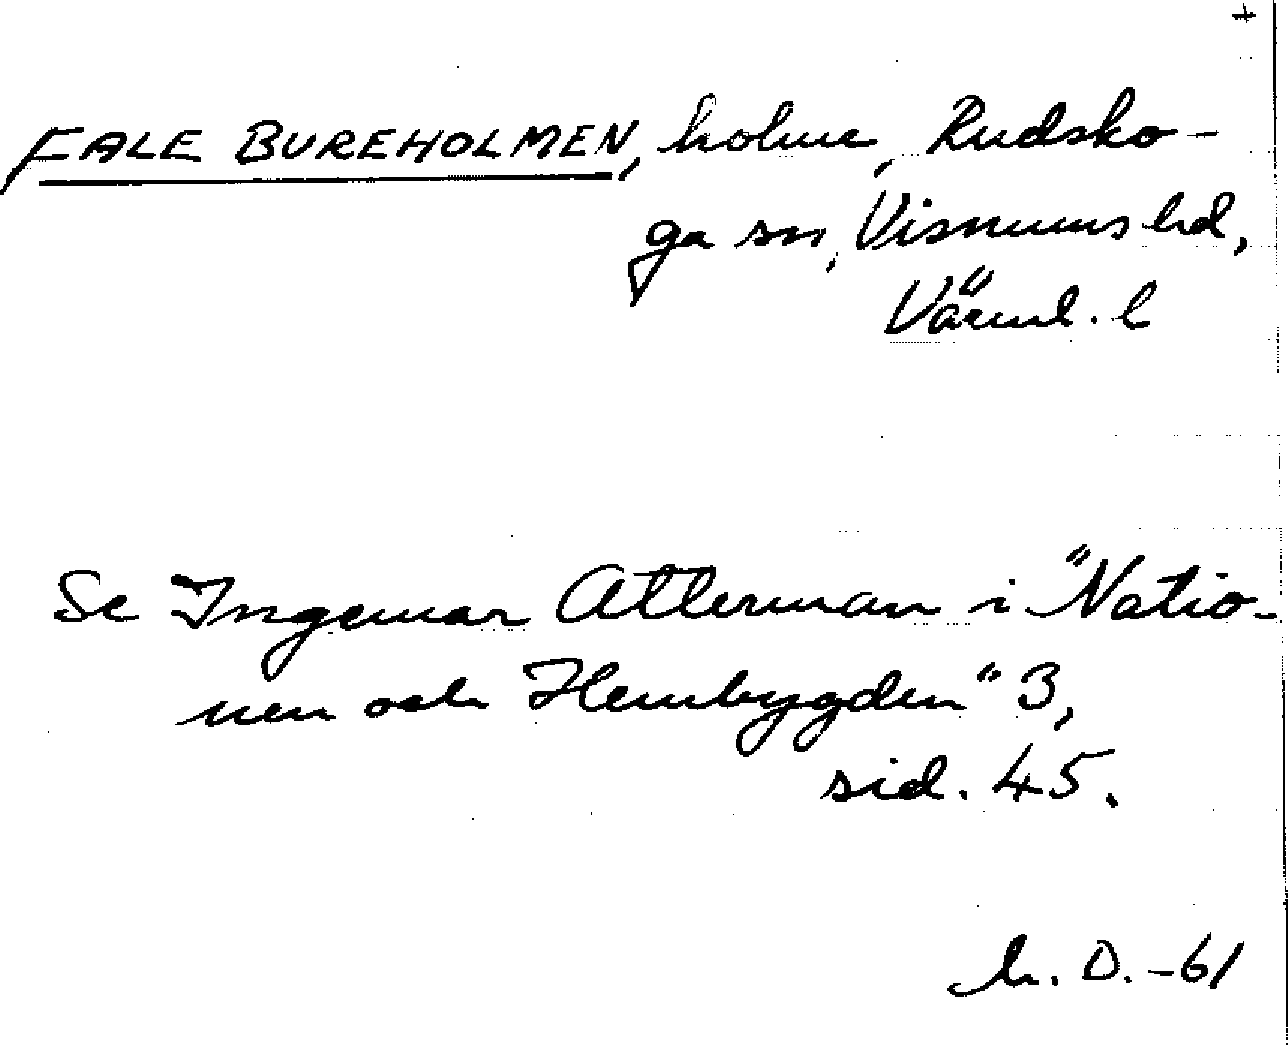 FALE BUREHOLMEN, holme, Rudsko-
ga sn, Visnums hd,
Värml. l
Se Ingemar Atterman i "Natio-
nen och Hembygden" 3,
sid. 45.
D. -61